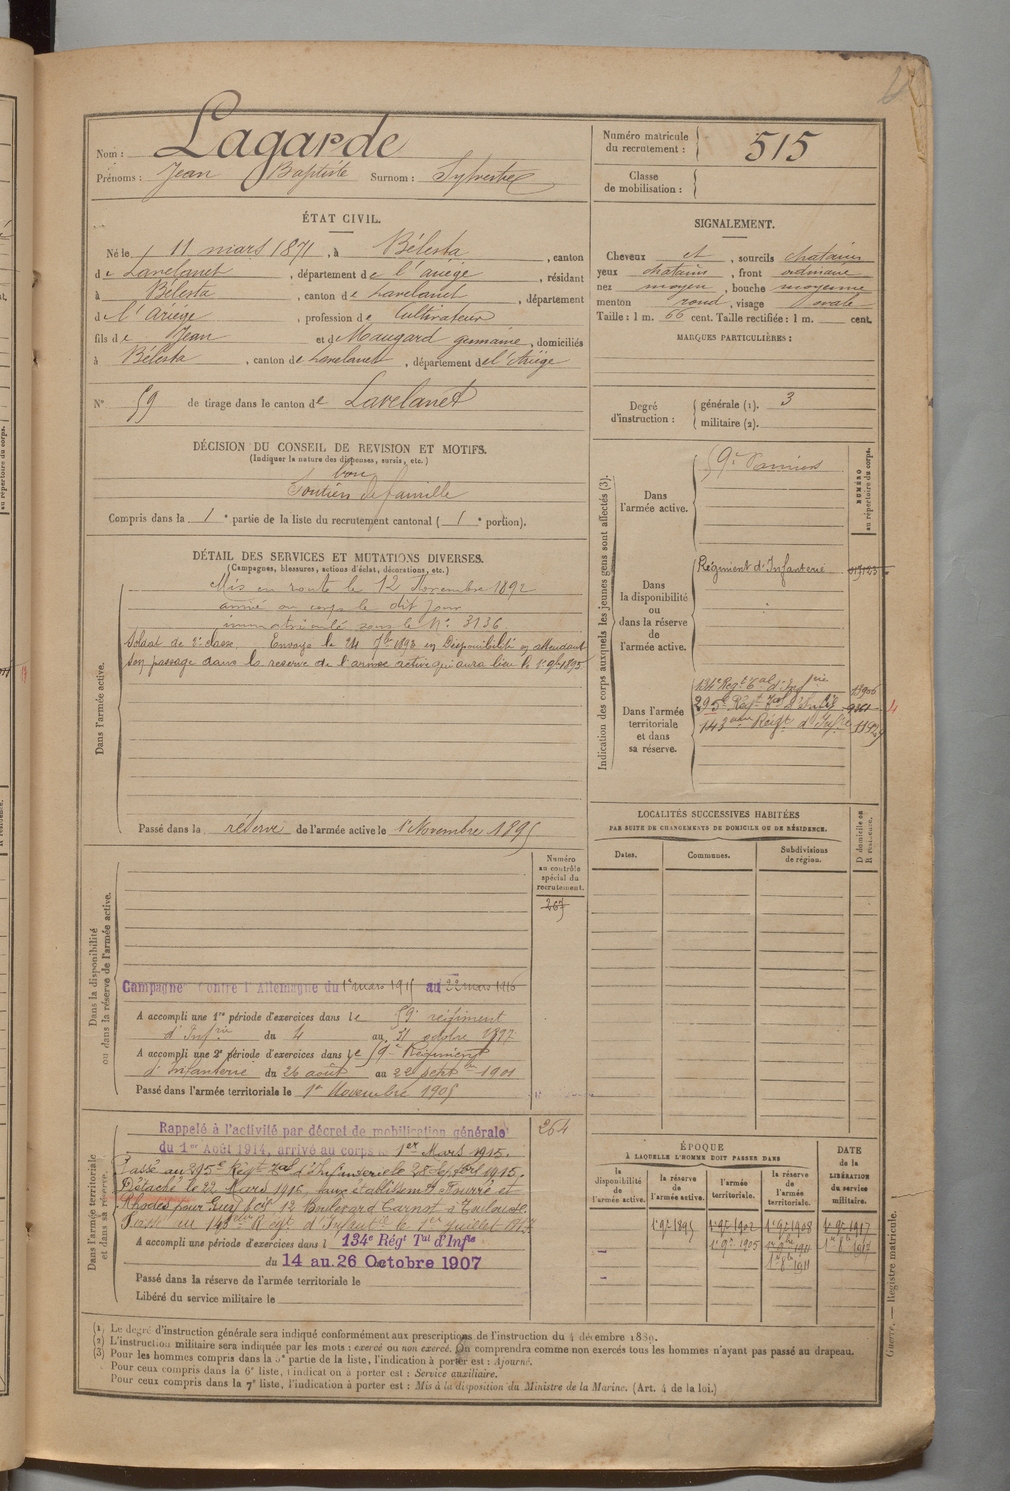 Nom : Lagarde
Prénoms : Jean Baptiste Surnom : Sylvestre
Numéro matricule
du recrutement : 515
Classe
de mobilisation :
ÉTAT CIVIL.
Né le 11 mars 1871, à Bélesta, canton
de Lavelanet, département de l'ariège, résidant
à Bélesta, canton de Lavelanet, département
de l'Ariége, profession de Cultivateur
fils de Jean et de Maugard germaine, domiciliés
à Bélesta, canton de Lavelanet, département de l'Ariège
N° 59 de tirage dans le canton de Lavelanet
SIGNALEMENT.
Cheveux et, sourcils chatains
yeux chatains, front ordinaire
nez moyen, bouche moyenne
menton rond, visage ovale
Taille : 1 m. 66 cent. Taille rectifiée : 1 m. cent.
MARQUES PARTICULIÈRES :
Degré
d'instruction :
générale (1). 3
militaire (2).
DÉCISION DU CONSEIL DE REVISION ET MOTIFS.
(Indiquer la nature des dispenses, sursis, etc.)
bon
Soutien de famille
Compris dans la 1e partie de la liste du recrutement cantonal (1e portion).
DÉTAIL DES SERVICES ET MUTATIONS DIVERSES.
(Campagnes, blessures, actions d'éclat, décorations, etc.)
Dans l'armée active.
Mis en route le 12 Novembre 1892
arrivé au corps le dit jour
immatriculé sous le N° 3136.
Soldat de 2e classe. Envoyé le 24 7bre 1893 en Disponibilité en attendant
son passage dans la reserve de l'armée active qui aura lieu le 1er 9bre 1895
Passé dans la réserve de l'armée active le 1er Novembre 1895
Indication des corps auxquels les jeunes gens sont affectés (3).
NUMÉRO
au répertoire du corps.
Dans
l'armée active.
59e Pamiers
Dans
la disponibilité
ou
dans la réserve
de
l'armée active.
Régiment d'Infanterie
Dans l'armée
territoriale
et dans
sa réserve.
134e Régt Tal d'Infrie 13906
295e Régt Tal d'Infie 9361
143ème Régt d'Infie
LOCALITÉS SUCCESSIVES HABITÉES
PAR SUITE DE CHANGEMENTS DE DOMICILE OU DE RÉSIDENCE.
Dates.
Communes.
Subdivisions
de région.
D domicile ou
R résidence.
Dans la disponibilité
ou dans la réserve de l'armée active.
Numéro
au contrôle
spécial du
recrutement.
267
Campagne Contre l'Allemagne du 1er mars 1915 au 22 mars 1916
A accompli une 1re période d'exercices dans le 59e régiment
d'Infrie du 4 au 31 octobre 1897
A accompli une 2e période d'exercices dans le 59e Régiment
d'Infanterie du 26 août au 22 septbre 1901
Passé dans l'armée territoriale le 1er Novembre 1905
Dans l'armée territoriale
et dans sa réserve.
264
Rappelé à l'activité par décret de mobilisation générale
du 1er Août 1914, arrivé au corps le 1er Mars 1915.
Passé au 295e Régt Tal d'Infanterie le 28 1915.
Détaché le 22 Mars 1916, aux établissemts Fourré et
Rhodes pour 12 Boulevard Carnot à Toulouse.
Passé au 143ème Régt d'Infantie le 1er Juillet
A accompli une période d'exercices dans l 134e Régt Tal d'Infie
du 14 au 26 Octobre 1907
Passé dans la réserve de l'armée territoriale le
Libéré du service militaire le
ÉPOQUE
À LAQUELLE L'HOMME DOIT PASSER DANS
DATE
de la
LIBÉRATION
du service
militaire.
la
disponibilité
de
l'armée active.
la réserve
de
l'armée active.
l'armée
territoriale.
la réserve
de
l'armée
territoriale.
1er 9bre 1895 1er 9bre 1902 1er 9bre 1908 1er 9bre 1917
1er 9bre 1905 1er 9bre 1911 1er 8bre 1917
1er 8bre 1911
Guerre. — Registre matricule.
(1) Le degré d'instruction générale sera indiqué conformément aux prescriptions de l'instruction du 4 décembre 1889.
(2) L'instruction militaire sera indiquée par les mots : exercé ou non exercé. On comprendra comme non exercés tous les hommes n'ayant pas passé au drapeau.
(3) Pour les hommes compris dans la 5e partie de la liste, l'indication à porter est : Ajourné.
Pour ceux compris dans la 6e liste, l'indication à porter est : Service auxiliaire.
Pour ceux compris dans la 7e liste, l'indication à porter est : Mis à la disposition du Ministre de la Marine. (Art. 4 de la loi.)